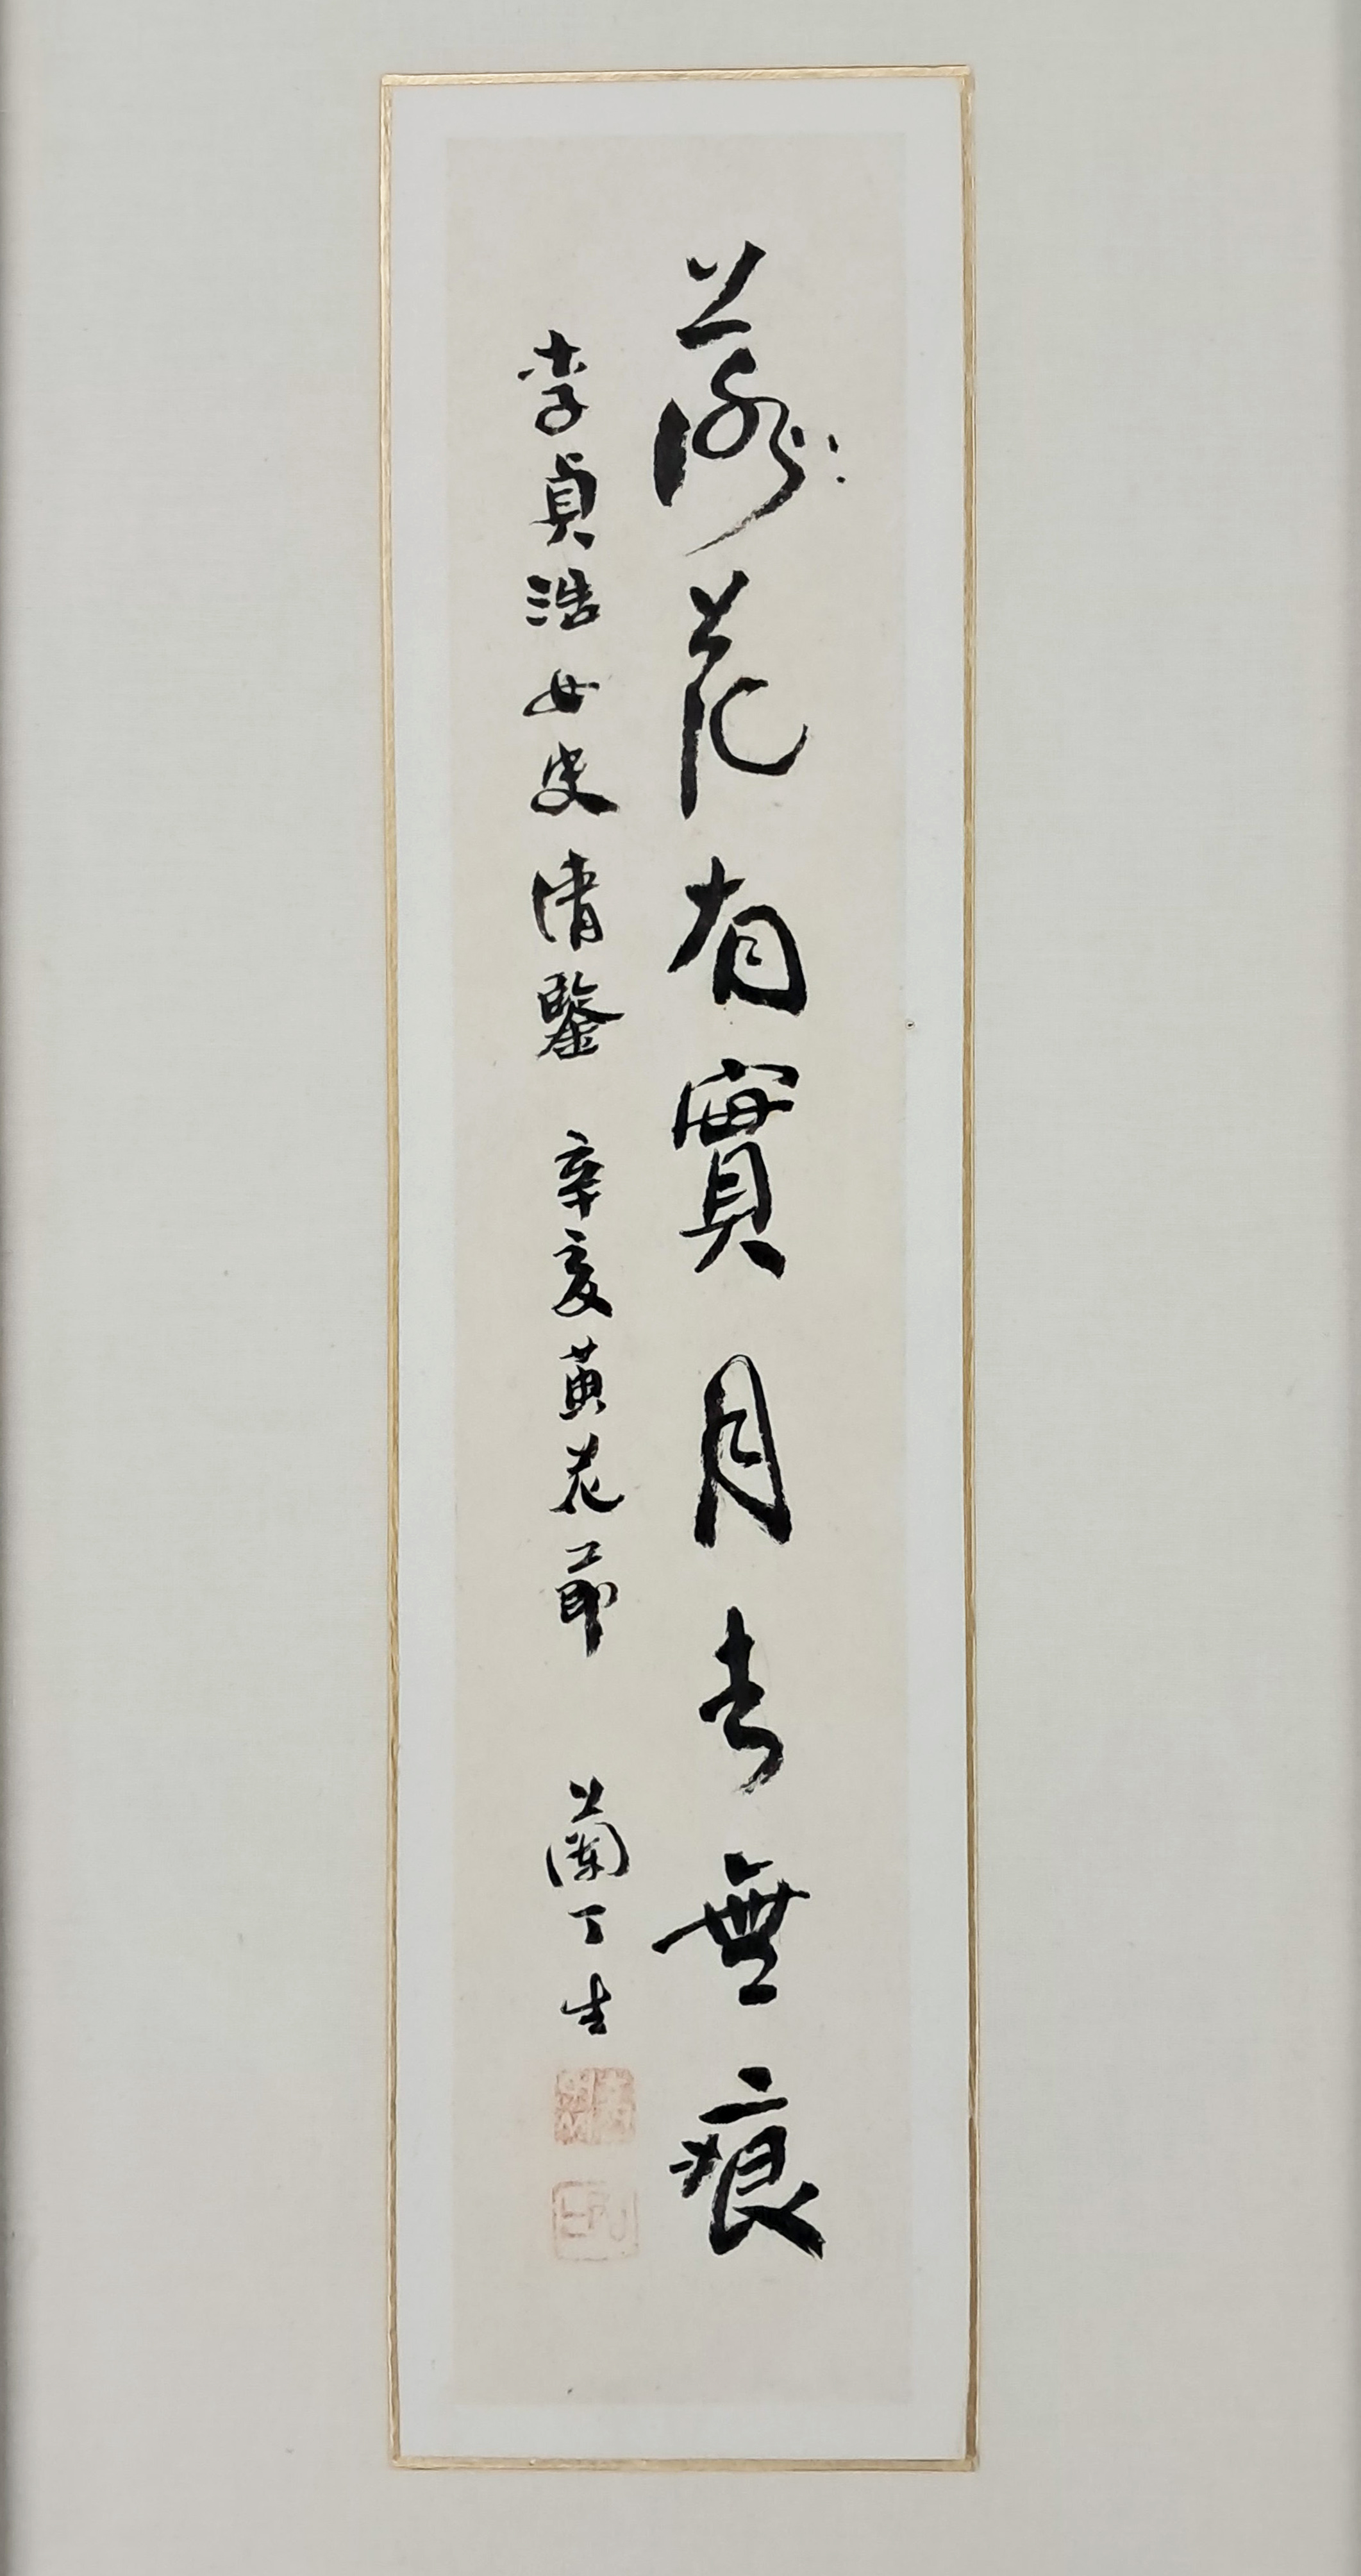 落花有實月去無痕
李貞浩女史清鑒 辛亥黃花節 蘭丁生